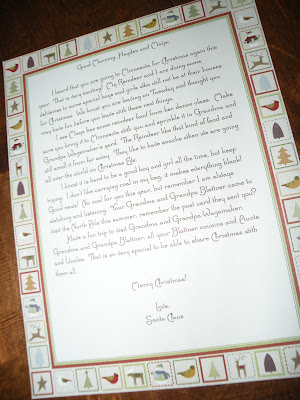 Good Morning, Hayden and Maya,
I heard that you are going to Minnesota for Christmas again this
year. That is very exciting! My Reindeer and I are doing some
deliveries to some special boys and girls who will not be at their houses
for Christmas. We know you are leaving on Tuesday and thought you
may have fun before you leave with these neat things.
I see Maya has some reindeer food from her dance class. Make
sure you bring it to Minnesota with you and sprinkle it in Grandma and
Grandpa Wagemaker's yard. The Reindeer like that kind of food and
will smell it from far away. They like to have snacks when we are going
all over the world on Christmas Eve.
I know it is hard to be a good boy and girl all the time, but keep
trying. I don't like carrying coal in my bag, it makes everything black!
Good news! No coal for you this year, but remember I am always
watching and listening. Your Grandma and Grandpa Blattner came to
visit the North Pole this summer, remember the post card they sent you?
Have a fun trip to visit Grandma and Grandpa Wagemaker,
Grandma and Grandpa Blattner, all your Blattner cousins and Aunts
and Uncles. That is so very special to be able to share Christmas with
them all.
Merry Christmas!
Love,
Santa Claus